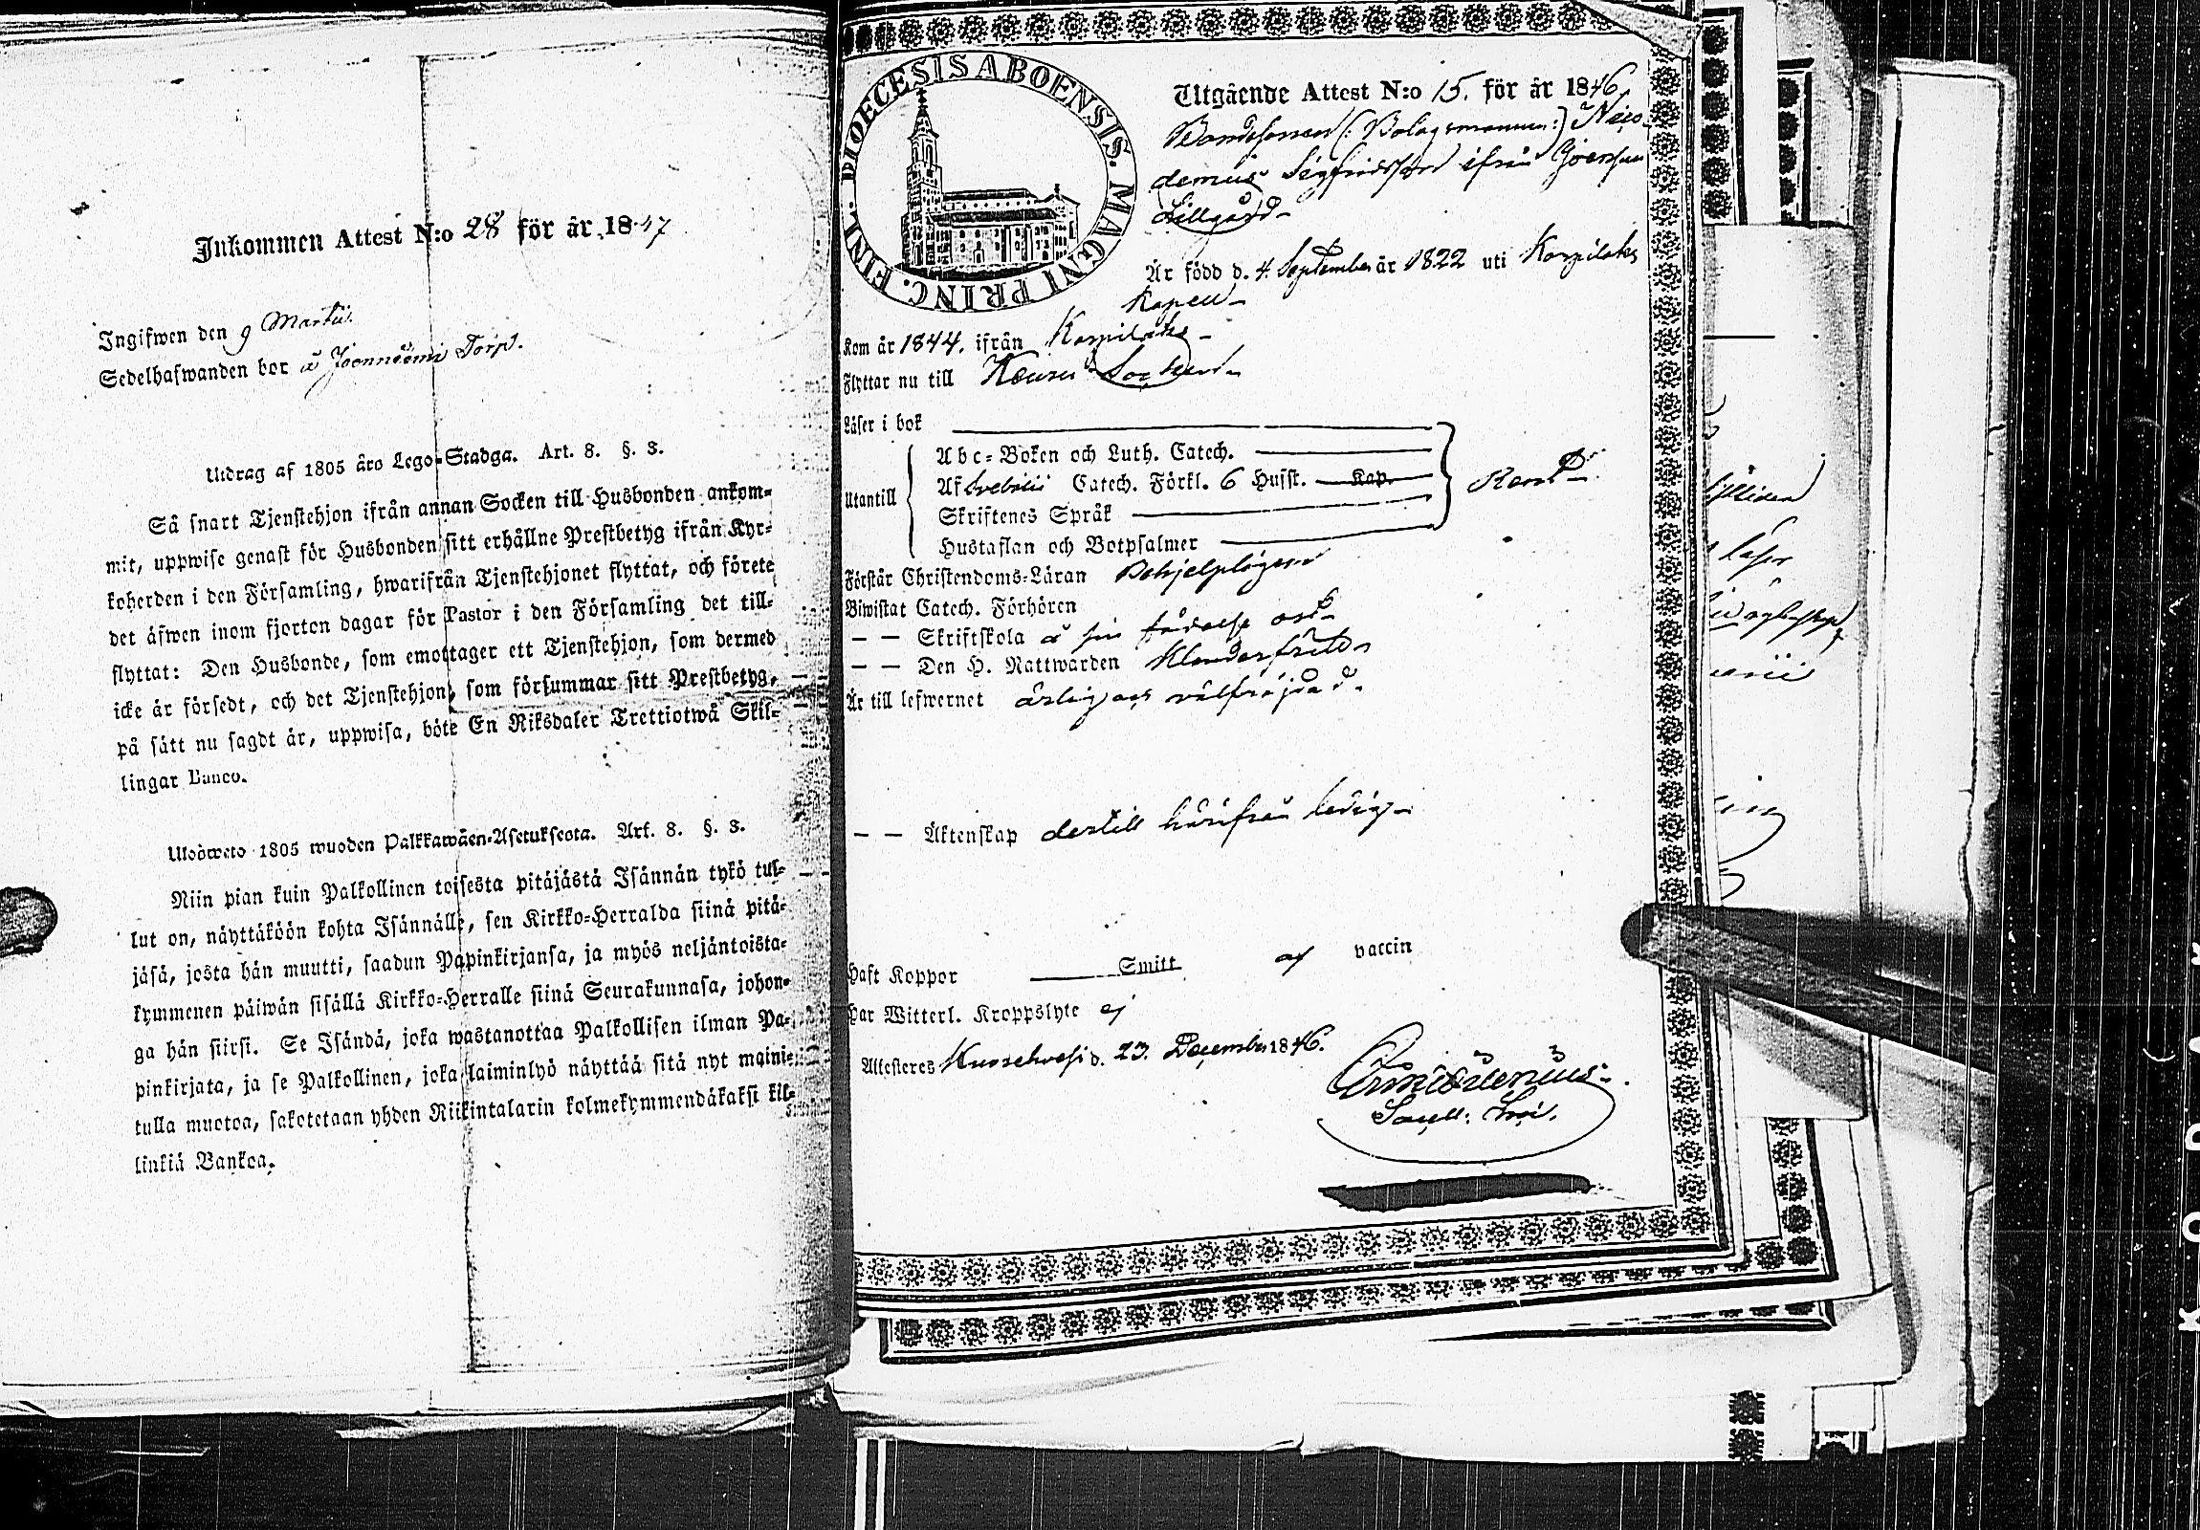 Inkommen Attest N:o 28 för år 1847
Ingifwen den 9 Martii.
Sedelhafwanden bor å Joenniemi Torp.
Utdrag af 1805 års Lego-Stadga. Art. 8. §. 3.
Så snart Tjenstehjon ifrån annan Socken till Husbonden ankom-
mit, uppwise genast för Husbonden sitt erhållne Prestbetyg ifrån Kyr-
koherden i den Församling, hwarifrån Tjenstehjonet flyttat, och förete
det äfwen inom fjorton dagar för Pastor i den Församling det till-
flyttat: Den Husbonde, som emottager ett Tjenstehjon, som dermed
icke är försedt, och det Tjenstehjon, som försummar sitt Prestbetyg,
på sätt nu sagdt är, uppwisa, böte En Riksdaler Trettiotwå Skil-
lingar Banco.
Ulosweto 1805 wuoden Palkkawäen-Asetuksesta. Art. 8. §. 3.
Niin pian kuin Palkollinen toisesta pitäjästä Isännän tykö tul-
lut on, näyttäköön kohta Isännälle, sen Kirkko-Herralda siinä pitä-
jäsä, josta hän muutti, saadun Papinkirjansa, ja myös neljäntoista-
kymmenen päiwän sisällä Kirkko-Herralle siinä Seurakunnasa, johon-
ga hän siirsi. Se Isändä, joka wastanottaa Palkollisen ilman Pa-
pinkirjata, ja se Palkollinen, joka laiminlyö näyttää sitä nyt maini-
tulla muotoa, sakotetaan yhden Riikintalarin kolmekymmendäkaksi kil-
linkiä Bankoa.
DIOECESIS ABOENSIS. MAGNI PRINC. FINL.
Utgående Attest N:o 15. för år 1846
Bondesonen (: Bolagsmannen :) Nico-
demus Sigfridsson ifrån
Lillgård
Är född d. 4 September år 1822 uti Korpilaks
Kapell
Kom år 1844. ifrån Korpilaks
Flyttar nu till Keuru Socken
Läser i bok
Utantill
Abc-Boken och Luth. Catech.
Af Svebilii Catech. Förkl. 6 Husst. Kap.
Skriftenes Språk
Hustaflan och Botpsalmer
Förstår Christendoms-Läran
Biwistat Catech. Förhören
— — Skriftskola å sin födelse ort
— — Den H. Nattwarden klanderfritt
Är till lefwernet ärlig och välfräjdad.
— — Äktenskap dertill härifrån ledig
Haft Koppor Smitt af vaccin
Har Witterl. Kroppslyte ej
Attesteras d. 23. December 1846.
KODAK